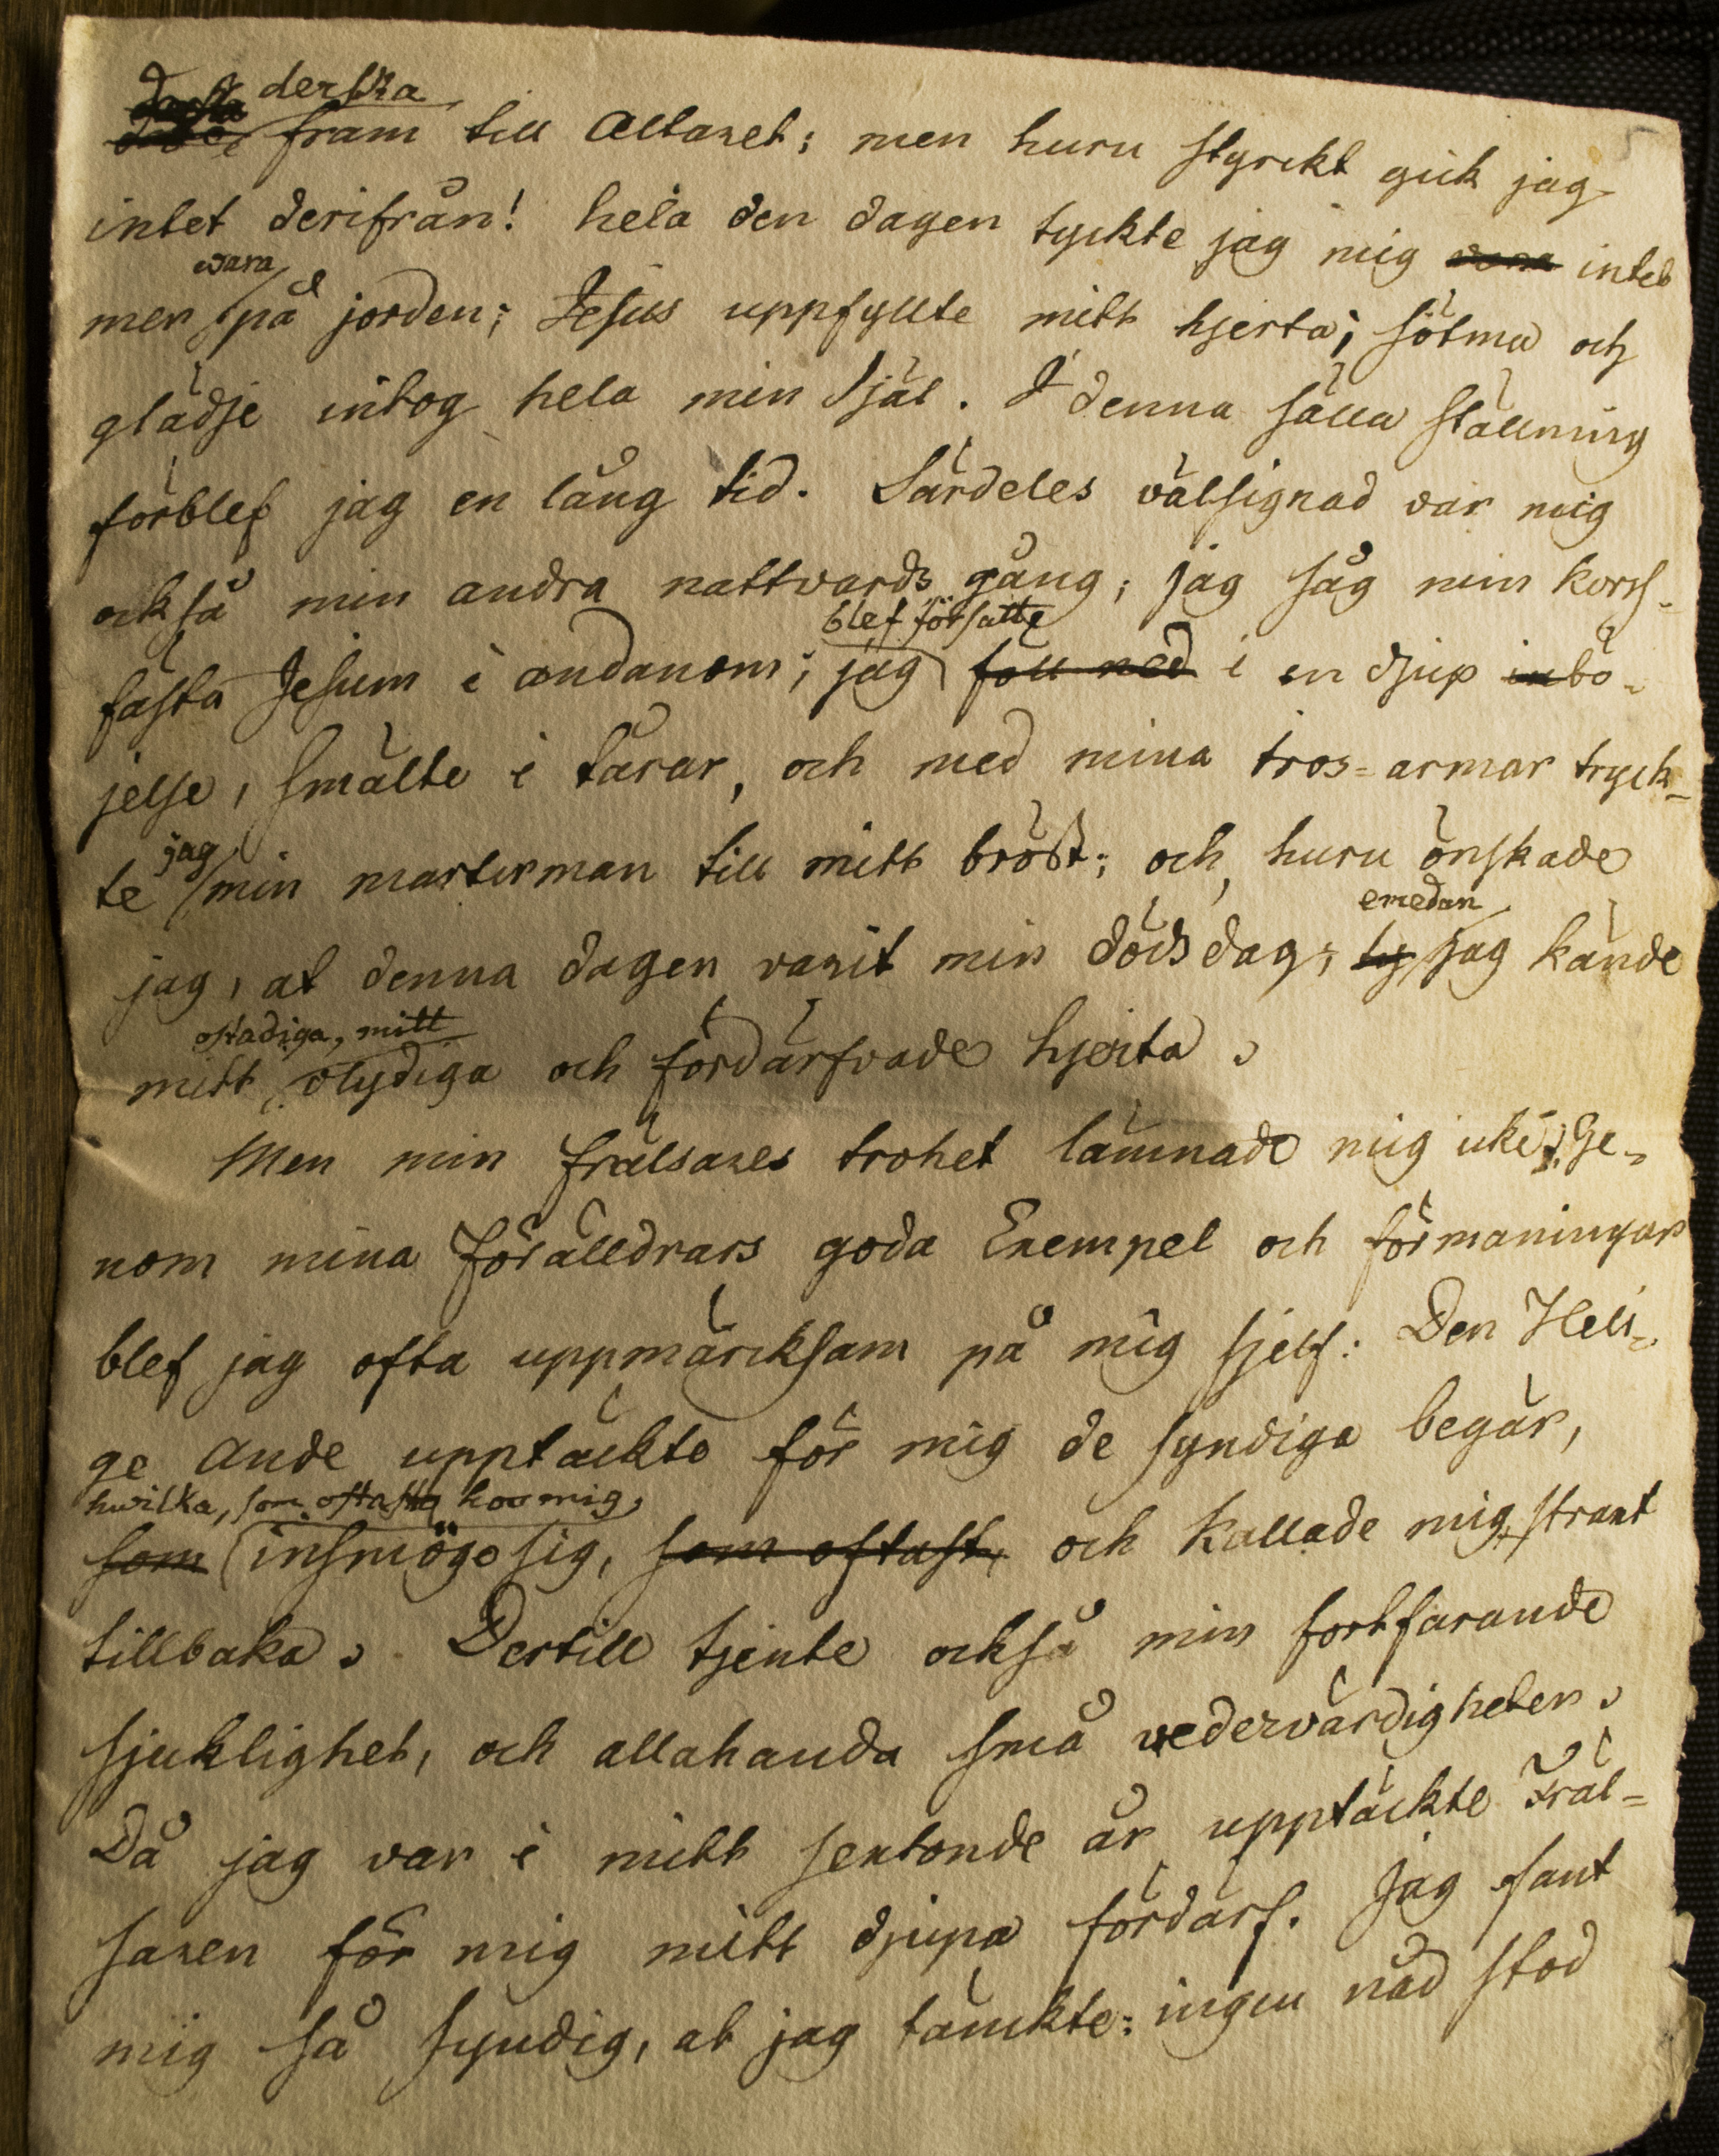 derska
fram till Altaret; men huru styrckt gick jag
intet derifrån! hela den dagen tyckte jag mig vara intet
wara
mer på jorden; Jesus uppfyllte mitt hjerta; sötma och
glädje intog hela min Själ. I denna sälla ställning
förblef jag en lång tid. Särdeles välsignad var mig
också min andra nattvards gång; jag såg min kors-
blef försatte
fästa Jesum i andanom; jag föll ned i en djup inbö-
jelse, smälte i tårar, och med mina tros-armar tryck-
jag
te min marterman till mitt bröst; och, huru önskade
emedan
jag, at denna dagen varit min dödsdag; ty jag kände
ostadiga, mitt
mitt olydiga och fördärfvade hjerta.
Men min frälsares trohet lämnade mig icke; Ge-
nom mina Föräldrars goda Exempel och förmaningar
blef jag ofta uppmärcksam på mig sjelf: Den Heli-
ge Ande upptäckte för mig de syndiga begär,
hwilka, som oftast hoo mig,
som insmögo sig, som oftast, och kallade mig strax
tillbaka. Dertill tjente också min fortfarande
sjuklighet, och allahanda små vedervärdigheter.
Då jag var i mitt sextonde år upptäckte Fräl-
saren för mig mitt djupa fördärf. Jag fant
mig så syndig, at jag tänckte: ingen nåd stod